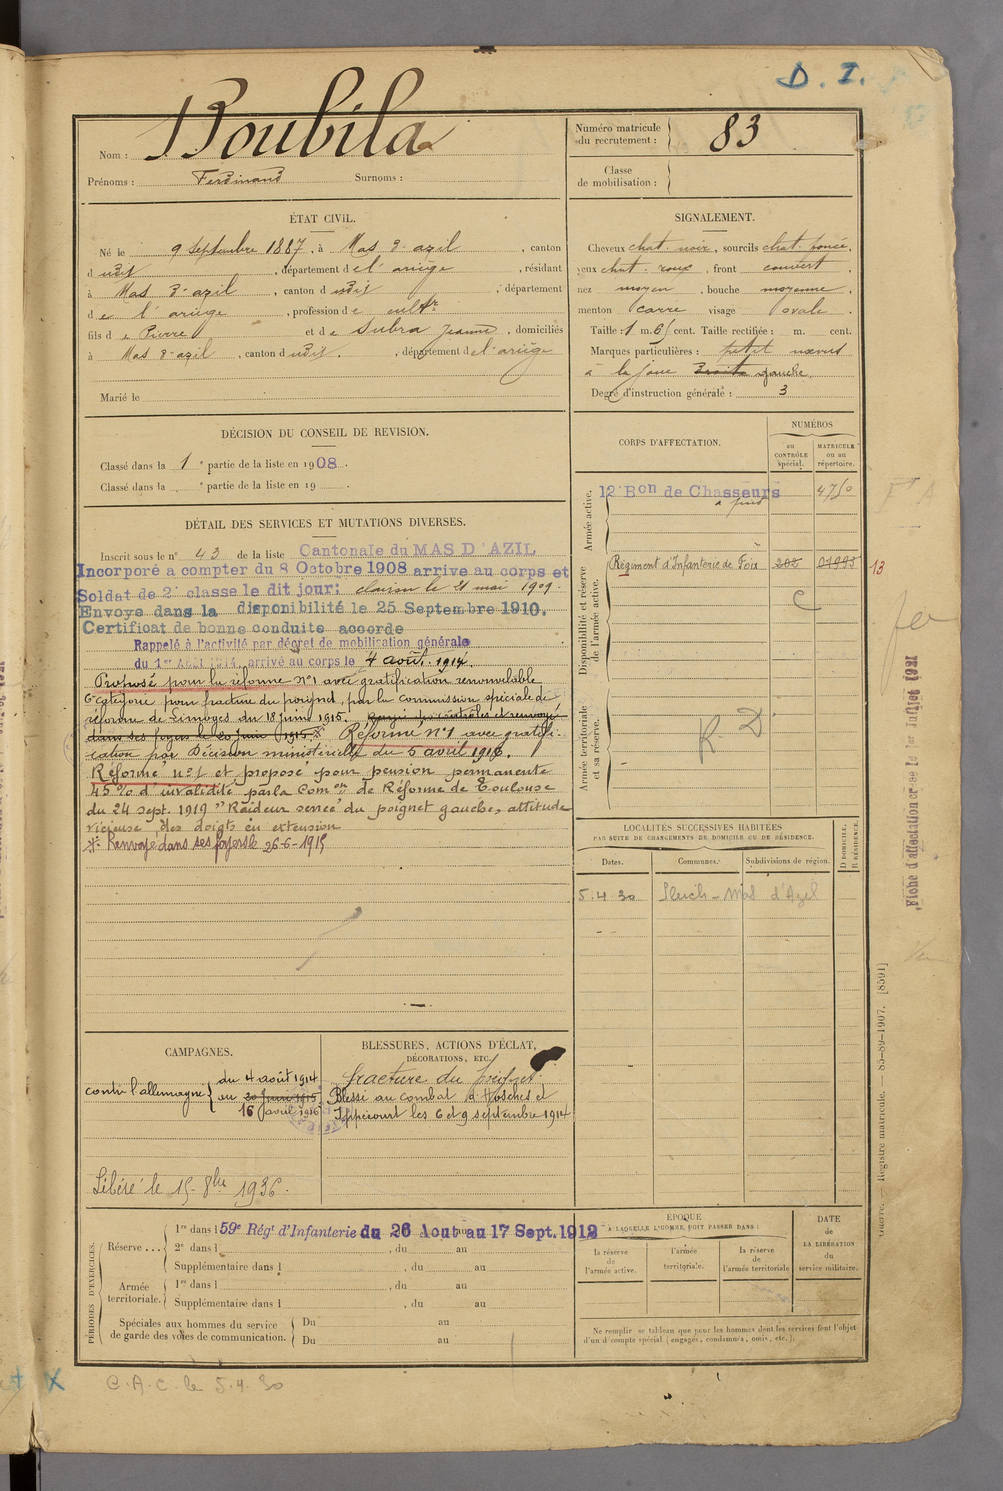 D. I.
Nom : Boubila
Prénoms : Ferdinand Surnoms :
Numéro matricule du recrutement : 83
Classe de mobilisation :
ÉTAT CIVIL.
Né le 9 Septembre 1887, à Mas d'azil, canton
d udit, département de l'ariège, résidant
à Mas d'azil, canton d udit, département
de l'ariège, profession de cultr
fils de Pierre et de Subra Jeanne, domiciliés
à Mas d'azil, canton d udit, département de l'ariège
Marié le
SIGNALEMENT.
Cheveux chat. noir, sourcils chat. foncé,
yeux chat. roux, front couvert,
nez moyen, bouche moyenne,
menton carré visage ovale.
Taille : 1 m. 65 cent. Taille rectifiée : m. cent.
Marques particulières : petit nœvus
à la joue droite gauche.
Degré d'instruction générale : 3
DÉCISION DU CONSEIL DE REVISION.
Classé dans la 1e partie de la liste en 1908.
Classé dans la e partie de la liste en 19
CORPS D'AFFECTATION.
NUMÉROS
au CONTRÔLE spécial.
MATRICULE ou au répertoire.
Armée active.
12e Bon de Chasseurs 4750
à pied
Disponibilité et réserve de l'armée active.
Régiment d'Infanterie de Foix 202 01995 13
C
Armée territoriale et sa réserve.
R. D
DÉTAIL DES SERVICES ET MUTATIONS DIVERSES.
Inscrit sous le n° 43 de la liste Cantonale du MAS D'AZIL
Incorporé a compter du 8 Octobre 1908 arrive au corps et
Soldat de 2e classe le dit jour; clairon le 21 mai 1909.
Envoye dans la disponibilité le 25 Septembre 1910.
Certificat de bonne conduite accorde
Rappelé à l'activité par décret de mobilisation générale
du 1er Août 1914, arrivé au corps le 4 août 1914.
Proposé pour la réforme n°1 avec gratification renouvelable
6e catégorie pour fracture du poignet, par la commission spéciale de
réforme de Limoges du 18 juin 1915. et renvoyé
dans ses foyers le 20 juin 1915 * Réformé n°1 avec gratifi-
cation par Décision ministérielle du 5 avril 1916.
Réformé n°1 et proposé pour pension permanente
45% d'invalidité par la Comon de Réforme de Toulouse
du 24 sept. 1919 "Raideur serrée du poignet gauche, attitude
vicieuse des doigts en extension
* Renvoyé dans ses foyers le 26-6-1915
LOCALITÉS SUCCESSIVES HABITÉES
PAR SUITE DE CHANGEMENTS DE DOMICILE OU DE RÉSIDENCE.
Dates. Communes. Subdivisions de région.
D DOMICILE. R RÉSIDENCE.
5.4.30 Mas d'Azil
CAMPAGNES.
contre l'allemagne du 4 août 1914
au 20 Juin 1915
16 avril 1916
Libéré le 15-8bre 1936.
BLESSURES, ACTIONS D'ÉCLAT,
DÉCORATIONS, ETC.
fracture du poignet.
Blessé au combat d'Hosches et
Ippécourt les 6 et 9 septembre 1914
PÉRIODES D'EXERCICES.
Réserve ... 1re dans l 59e Régt d'Infanterie du 26 Aout au 17 Sept. 1912
2e dans l , du au
Supplémentaire dans l , du au
Armée territoriale. 1re dans l , du au
Supplémentaire dans l , du au
Spéciales aux hommes du service de garde des voies de communication. Du au
Du au
ÉPOQUE
A LAQUELLE L'HOMME DOIT PASSER DANS :
la réserve de l'armée active.
l'armée territoriale.
la réserve de l'armée territoriale
DATE de LA LIBÉRATION du service militaire.
Ne remplir ce tableau que pour les hommes dont les services font l'objet
d'un décompte spécial (engagés, condamnés, omis, etc.).
Guerre. — Registre matricule. — 85-89-1907. [8591]
Fiche d'affectation créée le 1er Juillet 1921
C.A.C. le 5.4.30